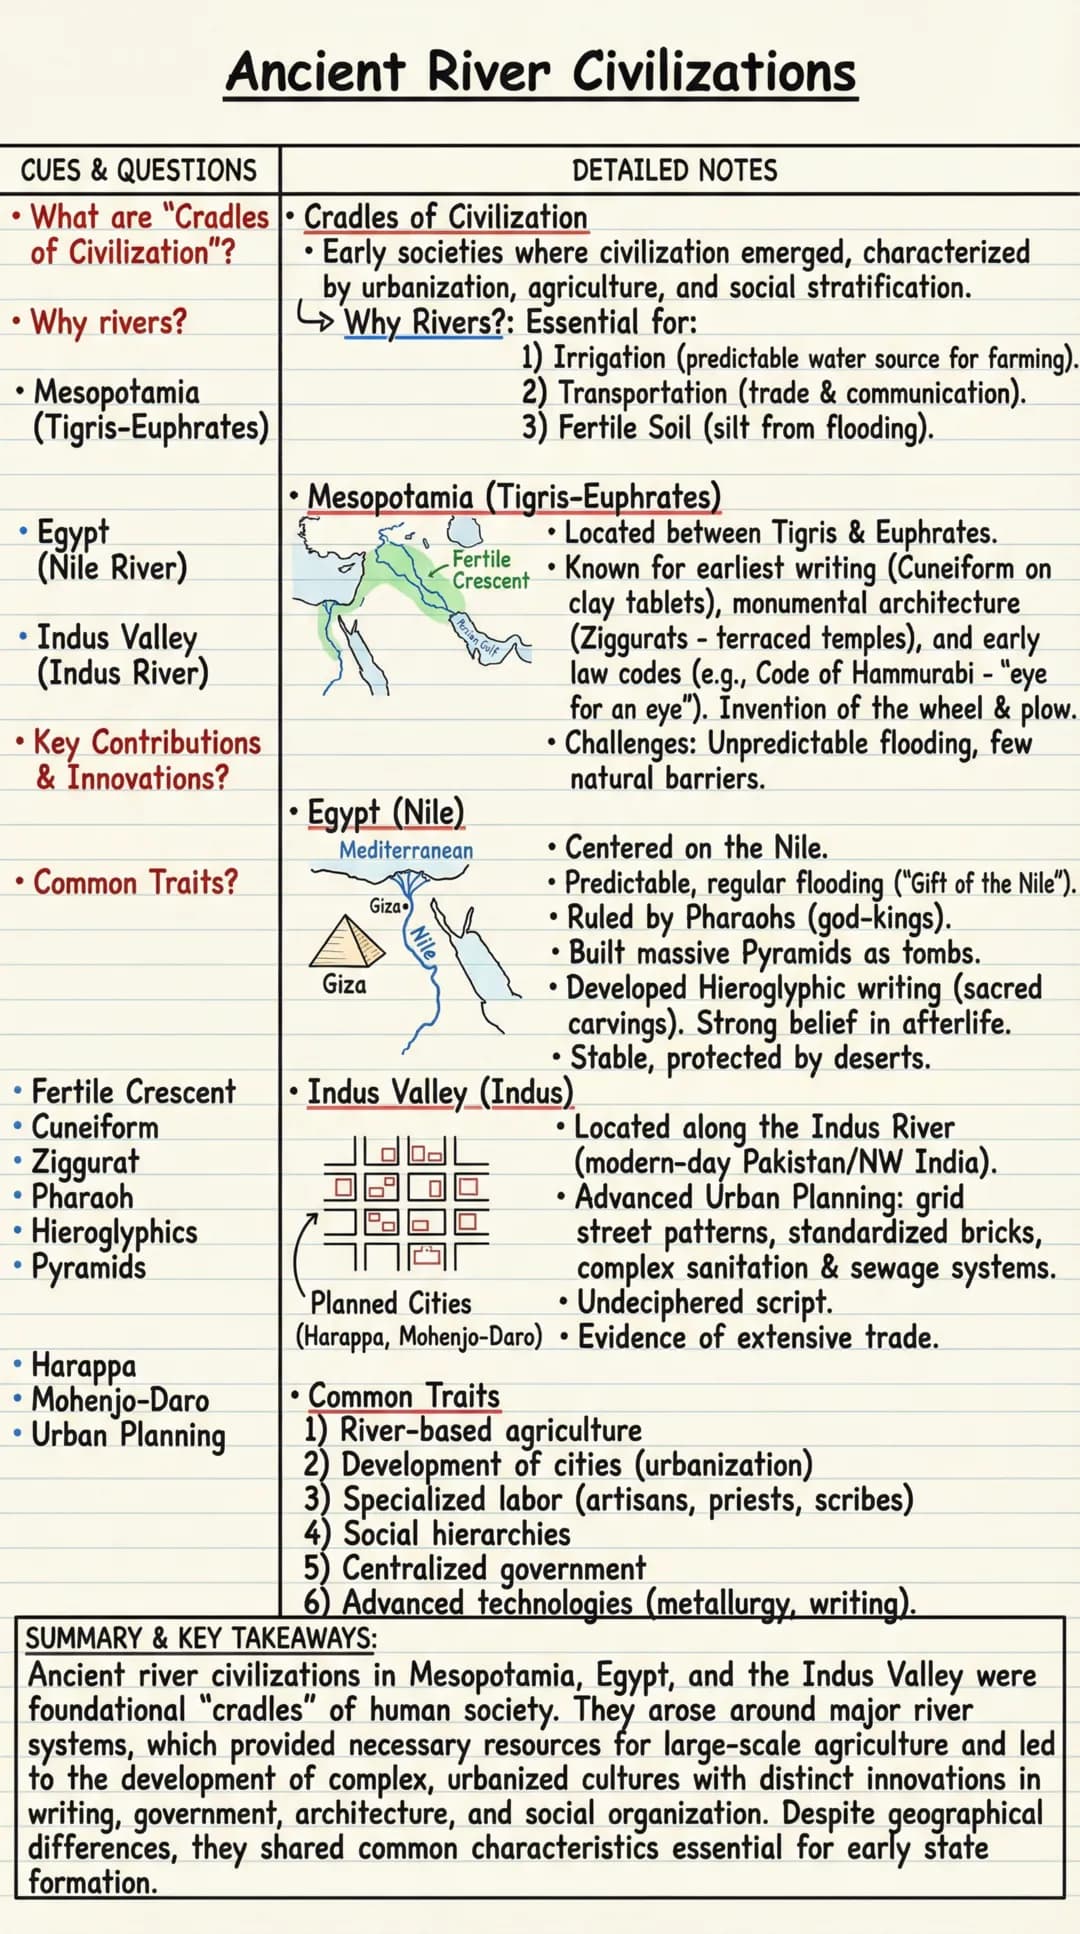 Ancient River Civilizations
CUES & QUESTIONS
• What are "Cradles
of Civilization"?
• Why rivers?
• Mesopotamia
(Tigris-Euphrates)
• Egypt
(Nile River)
• Indus Valley
(Indus River)
• Key Contributions
& Innovations?
• Common Traits?
• Fertile Crescent
• Cuneiform
• Ziggurat
• Pharaoh
• Hieroglyphics
• Pyramids
• Harappa
• Mohenjo-Daro
• Urban Planning
DETAILED NOTES
• Cradles of Civilization
• Early societies where civilization emerged, characterized
by urbanization, agriculture, and social stratification.
↳ Why Rivers?: Essential for:
1) Irrigation (predictable water source for farming).
2) Transportation (trade & communication).
3) Fertile Soil (silt from flooding).
• Mesopotamia (Tigris-Euphrates)
Fertile
Crescent
Persian Gulf
• Located between Tigris & Euphrates.
• Known for earliest writing (Cuneiform on
clay tablets), monumental architecture
(Ziggurats - terraced temples), and early
law codes (e.g., Code of Hammurabi - "eye
for an eye"). Invention of the wheel & plow.
• Challenges: Unpredictable flooding, few
natural barriers.
• Egypt (Nile)
Mediterranean
Giza
Nile
Giza
• Centered on the Nile.
• Predictable, regular flooding ("Gift of the Nile").
• Ruled by Pharaohs (god-kings).
• Built massive Pyramids as tombs.
• Developed Hieroglyphic writing (sacred
carvings). Strong belief in afterlife.
• Stable, protected by deserts.
• Indus Valley (Indus)
Planned Cities
(Harappa, Mohenjo-Daro)
• Located along the Indus River
(modern-day Pakistan/NW India).
• Advanced Urban Planning: grid
street patterns, standardized bricks,
complex sanitation & sewage systems.
• Undeciphered script.
• Evidence of extensive trade.
• Common Traits
1) River-based agriculture
2) Development of cities (urbanization)
3) Specialized labor (artisans, priests, scribes)
4) Social hierarchies
5) Centralized government
6) Advanced technologies (metallurgy, writing).
SUMMARY & KEY TAKEAWAYS:
Ancient river civilizations in Mesopotamia, Egypt, and the Indus Valley were
foundational "cradles" of human society. They arose around major river
systems, which provided necessary resources for large-scale agriculture and led
to the development of complex, urbanized cultures with distinct innovations in
writing, government, architecture, and social organization. Despite geographical
differences, they shared common characteristics essential for early state
formation.